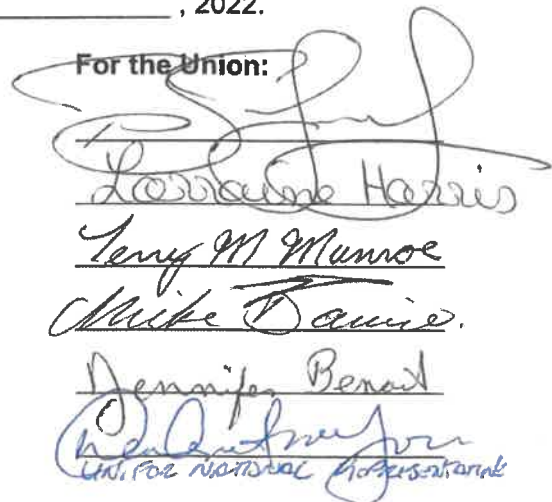 , 2022.
For the Union:
Lorraine Harris
Terry M Munroe
Mike
Jennifer Benoit
UNIFOR NATIONAL REPRESENTATIVE